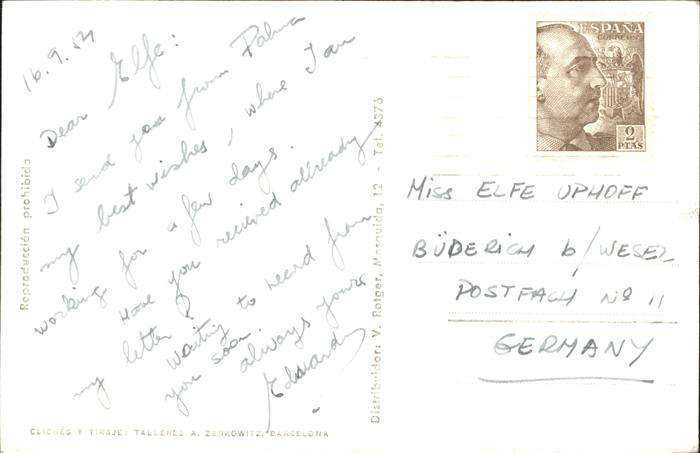 16.9.54
Dear Elfe:
I send you from Palma
my best wishes, where I am
working for a few days.
Have you recieved allready
my letter?
Waiting to heard from
you soon.
always yours
Edward
Reproducción prohibida
CLICHÉS Y TIRAJE: TALLERES A. ZERKOWITZ, BARCELONA
Distribuidor: V. Rotger, 12 - Tel. 4376
ESPAÑA
CORREOS
2
PTAS
Miss ELFE UPHOFF
BÜDERICH b/WESEL
POSTFACH Nº 11
GERMANY